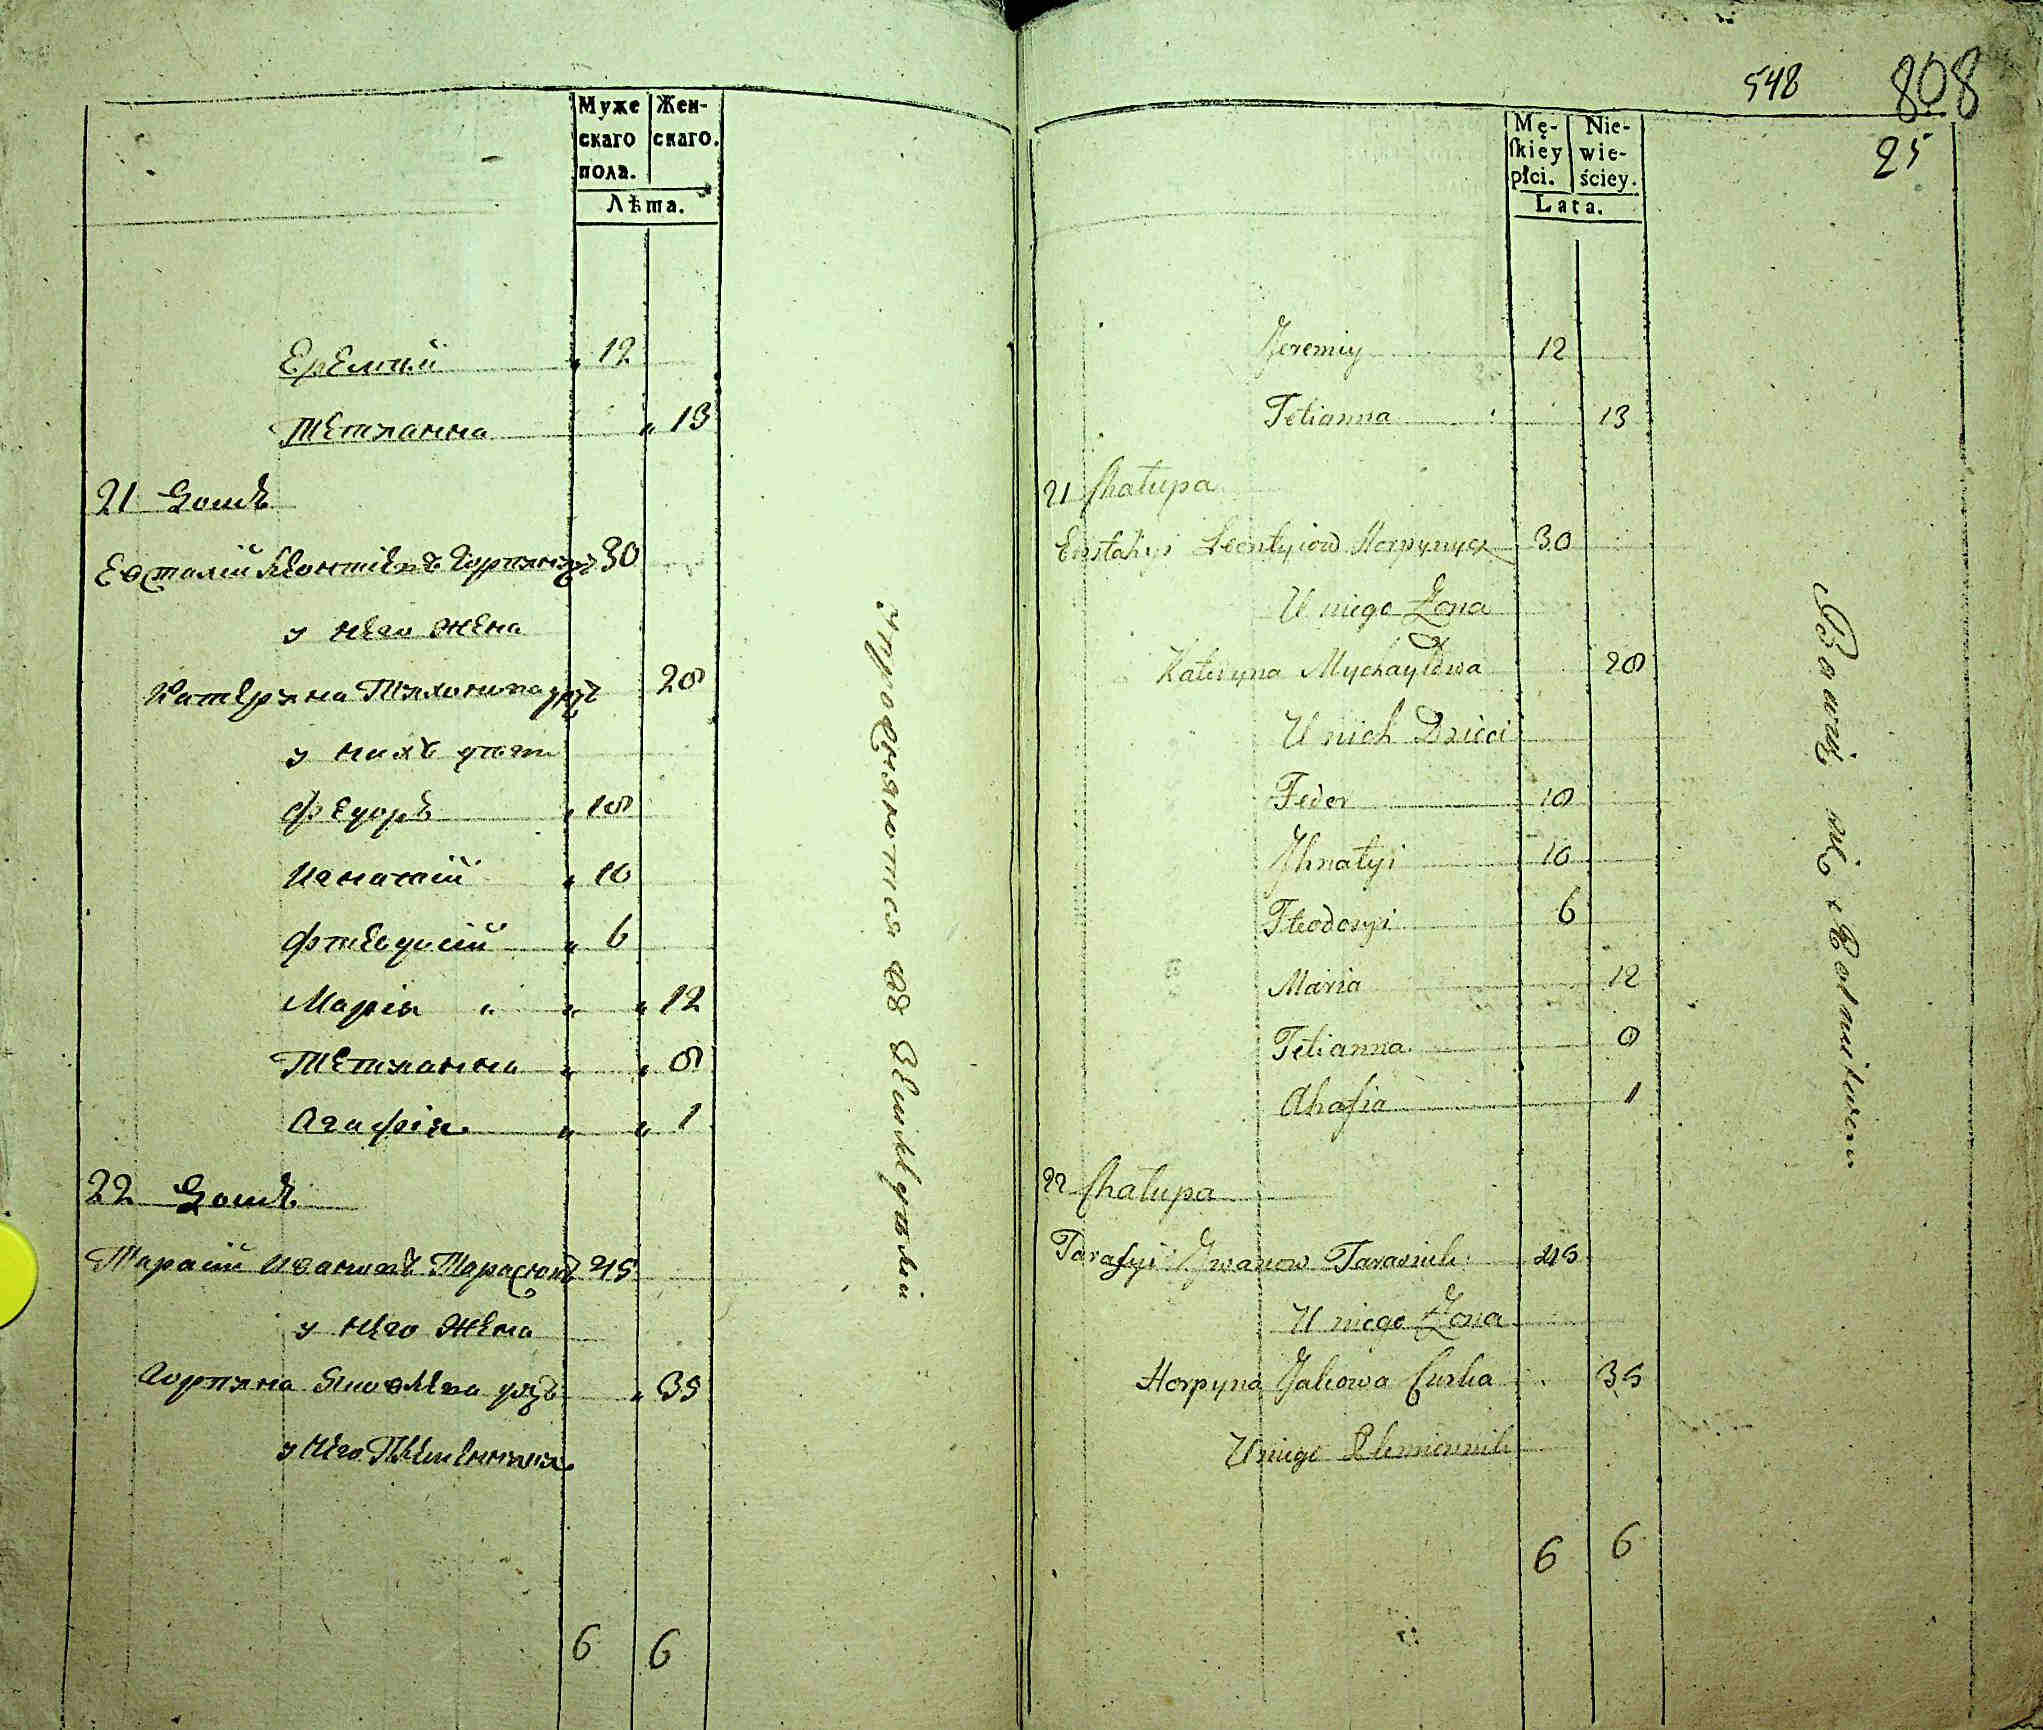 Муже
скаго
пола.
Жен-
скаго.
Лѣта.
Еремій „ 12
Тетяанна „ 13
21 Домъ
Евстафій Леонтіевъ Горпиничъ 30
у него жена
Катеряна 28
у нихъ дѣти
Федоръ „ 18
Игнатій „ 10
Фтеодосій „ 6
Марія „ „ „ 12
Тетяанна „ „ 8
Агафія „ „ 1
22 Домъ
Тарасій Ивановъ Тарасюкъ 45
у него жена
Горпяна Яковлева „ 35
у него Племенникъ
6 6
Упражняются въ Земледѣліи
548 808
25
Mę-
skiey
płci.
Nie-
wie-
ściey.
Lata.
Jeremiy 12
Tetianna 13
21 Chałupa
Eustahyi Leontyiow Horpynycz 30
U niego Żona
Kateryna Mychayłowa 28
U nich Dzieci
Feder 18
Jhnatyi 10
Fteodosyi 6
Maria 12
Tetianna 8
Ahafia 1
22 Chałupa
Tarasyi Jwanow Tarasiuk 45
U niego Żona
Horpyna Jakowa Curka 35
U niego Plemiennik
6 6
Bawią się Rolnictwem